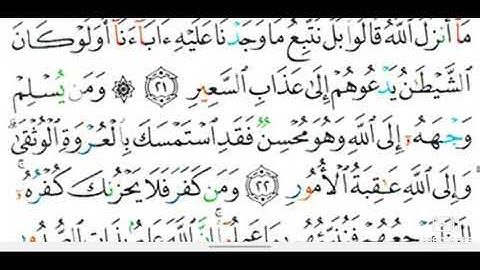 مَآ أَنزَلَ ٱللَّهُ قَالُوا۟ بَلْ نَتَّبِعُ مَا وَجَدْنَا عَلَيْهِ ءَابَآءَنَآ أَوَلَوْ كَانَ
ٱلشَّيْطَـٰنُ يَدْعُوهُمْ إِلَىٰ عَذَابِ ٱلسَّعِيرِ ٢١ ۞ وَمَن يُسْلِمْ
وَجْهَهُۥٓ إِلَى ٱللَّهِ وَهُوَ مُحْسِنٌ فَقَدِ ٱسْتَمْسَكَ بِٱلْعُرْوَةِ ٱلْوُثْقَىٰ ۗ
وَإِلَى ٱللَّهِ عَـٰقِبَةُ ٱلْأُمُورِ ٢٢ وَمَن كَفَرَ فَلَا يَحْزُنكَ كُفْرُهُۥٓ ۚ
إِلَيْنَا مَرْجِعُهُمْ فَنُنَبِّئُهُم بِمَا عَمِلُوٓا۟ ۚ إِنَّ ٱللَّهَ عَلِيمٌۢ بِذَاتِ ٱلصُّدُورِ